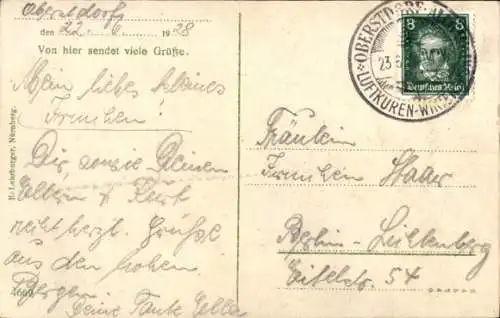 Oberstdorf
den 22. 6 1928
Von hier sendet viele Grüße.
Mein liebes kleines
Frauchen!
Dir, sowie Deinen
Eltern & Kurt
recht herzl. Grüße
aus den hohen
Bergen
Deine Tante Ella
H. Lukeburger, Nürnberg.
4669
OBERSTDORF
23.6
LUFTKUREN-WI
8 8
Deutsches Reich
Fräulein
Haar
Berlin-Lichtenberg
Eitelstr. 54